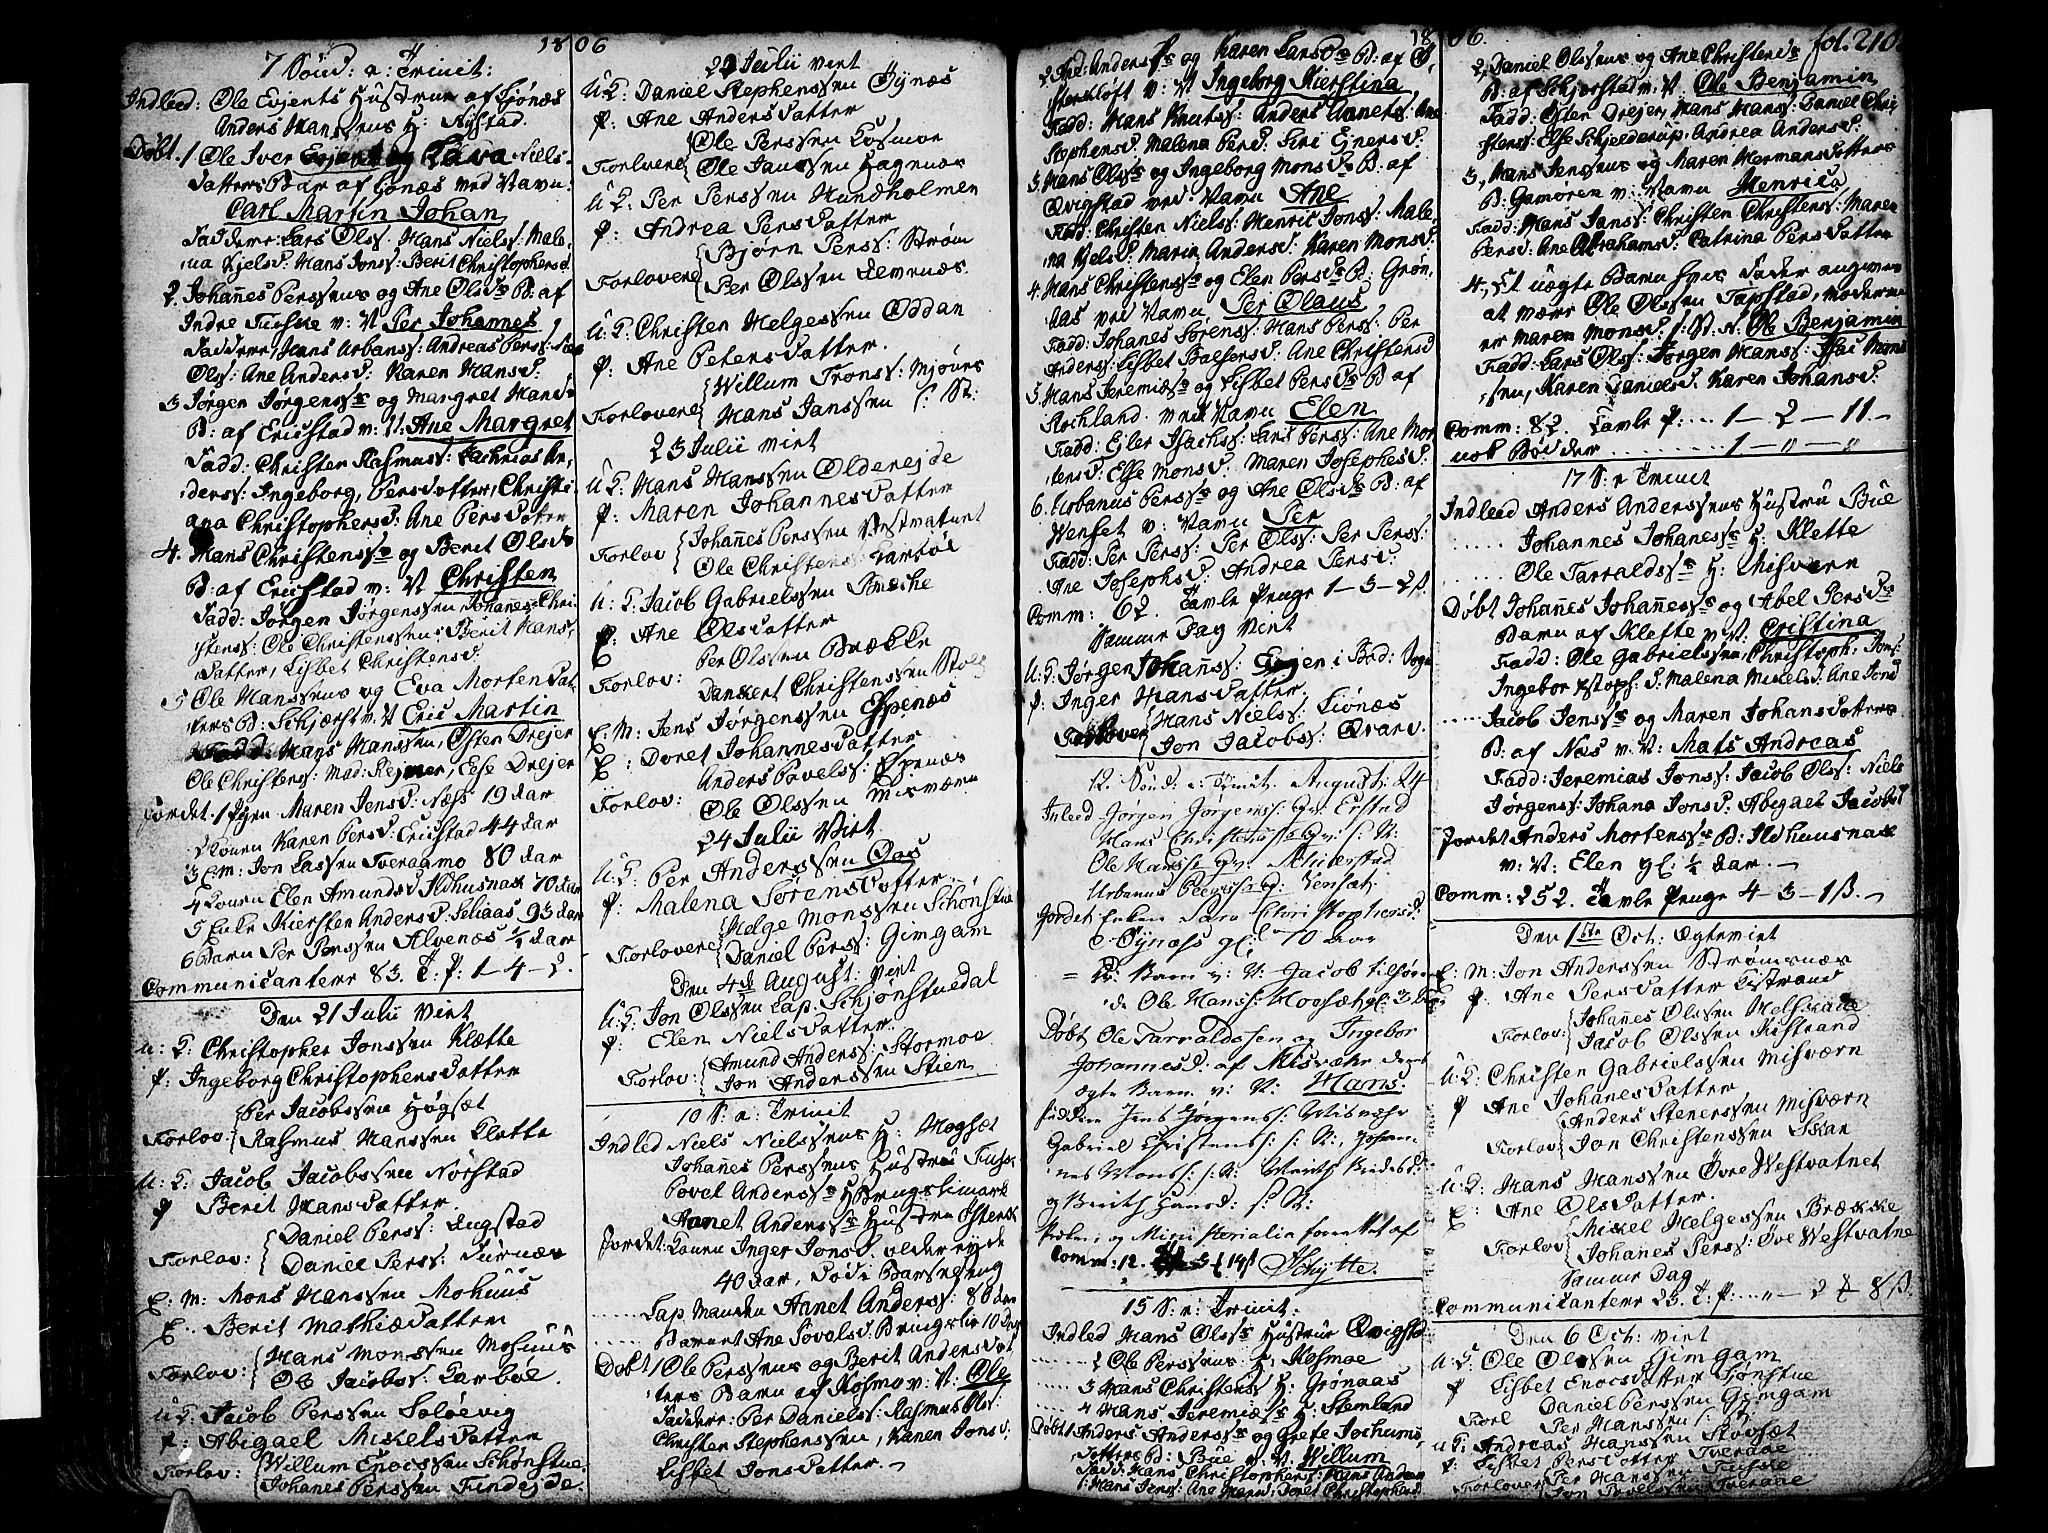 1806
7 Sønd: a: Trinit:
Indleed: Ole Evjents Hustrue af Ljønæs
Anders Hanssens H: Rystad.
Døbt. 1 Ole Iver og Niels-
datters Bar af Lønæs ved Navn:
Carl Martin Johan
Faddere: Lars Ols: Hans Niels: Male,
na Kjelsd: Hans Jons: Berit Christophersd.
2. Johanes Perssens og Ane Olsds B: af
Indre Fuske v: N Per Johannes
Faddere, Hans Urbans: Andreas Pers:
Ols: Ane Andersd: Karen Hansd:
3 Jørgen Jørgenss og Margret Hansds
B: af Ericstad v: N: Ane Margret
Fadd: Christen Rasmus: Zachrias An,
derss: Ingeborg, Persdatter, Christi-
ana Christophersd: Ane Persdatter
4. Hans Christenss og Berit Olsds
B: af Ericstad v: N Christen
Fadd: Jørgen Jørgenssen, Johanes Chri
stenss: Ole Christenssens Berit Hans,
datter, Lisbet Christensd:
5 Ole Hanssens og Eva Morten dat-
ters B: Schjærst v: N Eric Martin
Fadd: Hans Hanssen, Østen Drejer
Ole Christens: Mad: Rejmer, Else Drejer
Jordet. 1 Pgen Maren Jensd: Næss 19 aar
2 Konen Karen Persd: Ericstad 44 aar
3 E.m: Jon Lassen Tveraamo 80 aar
4 Konen Elen Amundsd Ildhusnæs 70 aar
5 Enke Kiersten Andersd: Seliaas 93 aar
6 Barn Per Perssen Alvenæs ¼ aar
Communicantere 83. T: P: 1-4-2.
Den 21 Julii viet
U: K: Christopher Jonssen Klætte
P: Ingeborg Christophersdatter
Forlov: Per Jacobssen Høgset
Rasmus Hanssen Klette
U: K: Jacob Jacobssen Nøstad
P Berit Hansdatter.
Forlov: Daniel Perss: Rugstad
Daniel Perss: Furnæs
E: M: Mons Hanssen Mohuus
E: Berit Mathiædatter
Forlov: Hans Monssen Mohuus
Ole Jacobs: Karbøe.
U: K: Jacob Perssen Soløevig
P: Abigael Mikelsdatter
Forlov: Willum Enocssen Schønstue.
Johanes Perssen Findejde.
22 Julii viet
U: K: Daniel Stephenssen Øynæs
P: Ane Andersdatter
Forlovere Ole Perssen Kosmoe
Ole Janssen Hagenæs
U: K: Per Perssen Hundholmen
P: Andrea Persdatter
Forlovere Bjørn Perss: Strøm
Per Olssen Revenæs.
U: K: Christen Helgessen Oddan
P: Ane Petersdatter.
Forlovere Willum Tronss: Mjønes
Hans Janssen S: St:
23 Julii viet
U: K: Hans Hanssen Oldereide
P: Maren Johannesdatter
Forlov Johanes Perssen Vestvatnet
Ole Christenss: Karbøe
U: K: Jacob Gabrielssen
P: Ane Olsdatter
Forlov: Per Olssen Brække
Dankert Christenssen
E: M: Jens Jørgenssen Espenæs
E: Doret Johannesdatter
Forlov: Anders Povels: Espenæs
Ole Olssen Misværn
24 Julii Viet
U: K: Per Anderssen Oas
P: Malena Sørensdatter.
Forlovere Helge Monssen Schønstue
Daniel Pers: Gimgam
Den 4de August: viet
U: K: Jon Olssen Lap. Schjønstuedal
P: Elen Nielsdatter.
Forlov: Amund Anders: Stormoe
Jon Anderssen Stien
10 S: a: Trinit
Indled Niels Nielssens H: Hogset
Johanes Perssens Hustru Fuske
Povel Anderss H: Brugslimark
Annet Anderss Hustru Østerk
Jordet: Konen Inger Jonsd: oldereyde
40 aar, død i Barselseng
Lap. Manden Annet Anders: 80 aar
Barnet Ane Povelsd: Brugslie 10
Døbt 1 Ole Perssens og Berit Andersdat
ters Barn af Kosmo v: N: Ole
Faddere: Per Daniels: Rasmus Ols:
Christen Stephenssen, Karen Jonsd:
Lisbet Jonsdatter.
1806.
2 Ane: Anders og Karen Larsds B: af
sterkløft v: N Ingeborg Kierstina
Fadd: Hans Knuts: Anders Annets: Ane
Stephensd: Malena Persd: Siri Ejnersd:
3. Hans Olss og Ingeborg Monsds B: af
Qvigstad ved Navn Ane
Fad: Christen Niels: Henric Jons: Male,
na Kjelsd: Maria Andersd: Karen Monsd:
4. Hans Christenss og Elen Persds B: Grøn,
aas ved Navn Per Olaus
Fadd: Johanes Sørens: Hans Perss: Per
Anders: Lisbet Baltsersd: Ane Christensd
5. Hans Jeremiæss og Lisbet Persds B: af
Rochland ved Navn Elen
Fadd: Ejler Isachs: Lars Perss: Ane Mor
tensd: Else Monsd: Maren Josephsd:
6. Urbanus Perss og Ane Olsds B: af
Venset v: Navn Per
Fadd: Per Pers: Per Ols: Per Perss:
Ane Josephsd: Andrea Persd:
Comm: 62. Tavle Penge 1-3-2ß.
Samme Dag Viet
U: K: Jørgen Johans: i Bod: Sogn
P: Inger Hansdatter.
Forlovere Hans Niels: Liønæs
Jon Jacobs: Qvarv.
12. Sønd. a: Trinit. August: 24
Inleed Jørgen Jørgens: qv: Erstad
Hans Christens qv: S: St:
Ole Hans qv: Mittestad
Urbanus qv: Venset.
Jordet Enken Sara Christophersd:
Øynæss gl: 70 aar
= Barn v: N: Jacob
Ole Hans:
Døbt Ole Tarraldssen og Ingebor
Johannesd. af Misvæhr deres
ægte Barn v: N: Hans.
Faddere Jens Jørgens: Misvæhr
Gabriel Cristens: S: St:, Johan
nes Mons: S: St: Marith
og Berith Hansd: S: St:
Ministerialia forrettet af
Comm: 12. Schytte.
15 S: a: Trinit:
Indled Hans Olss Hustrue Qvigstad
2 Ole Perssens H: Kosmoe
3 Hans Christens H: Grønaas
4 Hans Jeremiæs H: Stemland
Døbt 1 Anders Anderss og Grete Jochums,
datters B: Bue v: N: Willum
Fadd: Hans Christophers: Hans Anders
: Hans Jens: Ane Hansd: Doret Christophersd:
fol. 210.
2, Daniel Olssens og Ane Christensds
B: af Schjerstad v: N: Ole Benjamin
Fadd: Østen Drejer, Hans Hanss: Daniel Chri-
stens: Else Schjelderup: Andrea Andersd:
3, Hans Jenssens og Maren Hermansdatters
B: Gamøren v: Navn Henrica
Fadd: Hans Jans: Christen Christens: Maren
Persd: Ane Abrahamsd: Catrina Persdatter
4., Et uægte Barn hvis Fader angives
at være Ole Olssen Tapstad, moderen
er Maren Monsd: S: St. N: Ole Benjamin
Fadd: Lars Ols: Jørgen Hans: Isac Mons
sen, Karen Danielsd: Karen Johansd:
Comm: 82. Tavle P: .... 1-2-11.-
nok Bødder ........... 1-"-"
17 S: a Trinit
Indleed Anders Anderssens Hustru Bue
Johannes Johaness H: Klette
Ole Tarraldss H: Misværn
Døbt Johanes Johaness og Abel Persds
Barn af Klette v: N: Cristina
Fadd: Ole Gabrielssen, Christoph: Jons:
Ingebor Xstoph: D: Malena Mikelsd: Ane Jonsd
Jacob Jenss og Maren Johansdatters
B: af Næs v: N: Mats Andreas
Fadd: Jeremias Jons: Jacob Ols: Niels
Jørgens: Johana Jonsd: Abigael Jacobsd
Jordet Anders Mortenss B: Ildhuusnæs
v: N: Elen gl: ½ aar.-
Comm: 252. Tavle Penge 4-3-1ß.-
Den 1ste Oct: Ægteviet
E: M: Jon Anderssen Strømsnæs
P: Ane Persdatter Kistrand
Forlov: Johanes Olssen
Jacob Olssen Kistrand
U: K: Christen Gabrielssen Misværn
P Ane Johanesdatter
Forlov Anders Stenerssen Misværn
Jon Christenssen
U: K: Hans Hanssen Øvre Westvatnet
E: Ane Olsdatter.
Forlov Mikel Helgessen Brække
Johanes Perss: Øve Westvatne
Samme Dag
Communicantere 23. T: P: ..." - 2 & 8ß.
Den 6 Oct: viet
U: K: Ole Olssen Gimgam
P Lisbet Enocsdatter Schønstue
Forl Daniel Perssen Gimgam
Per Hanssen S: St:
U: K: Andreas Hanssen Stovset
P: Lisbet Persdatter Tveraae
Forlovere Per Hanssen Fuske
Jon Povelssen Tveraae